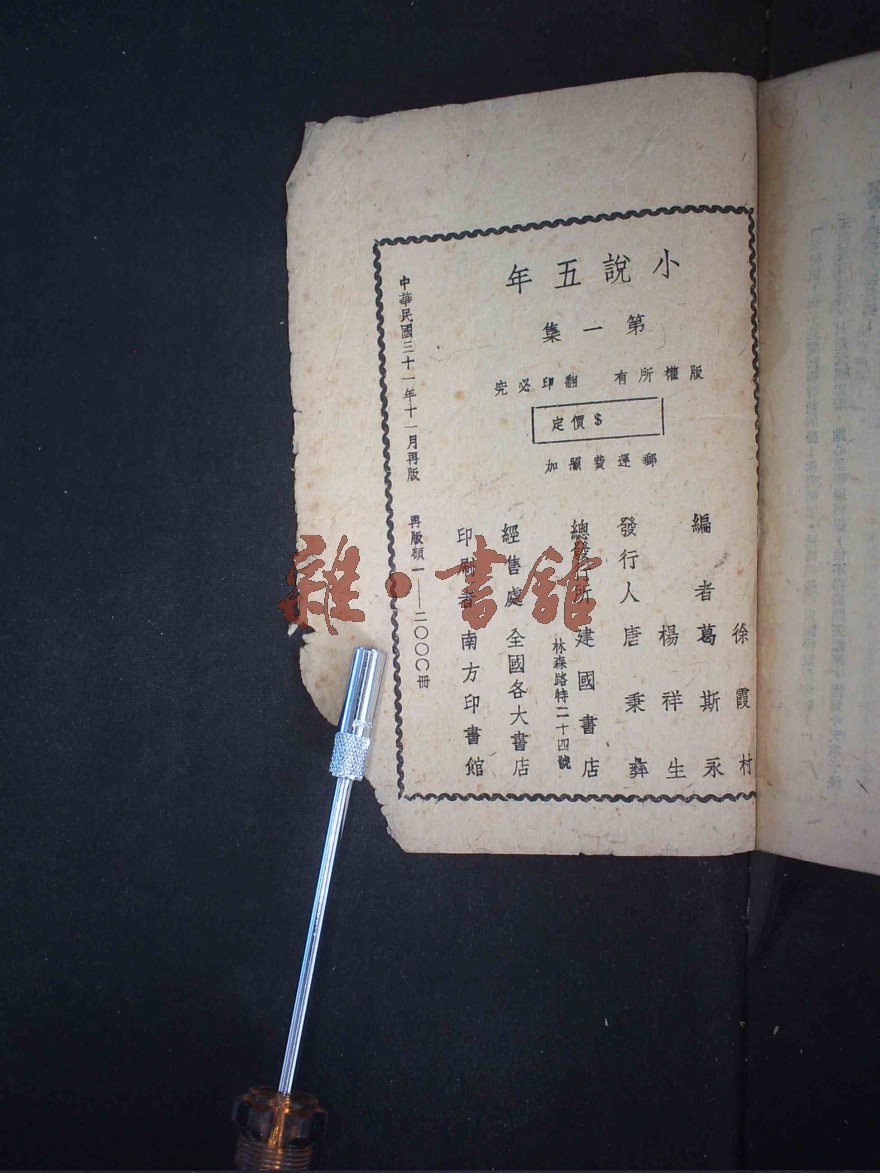 小說五年
第一集
版權所有 翻印必究
定價$
郵運費照加
徐霞村
編者葛斯永
楊祥生
發行人唐秉彝
總發行所建國書店
林森路特二十四號
經售處全國各大書店
印刷者南方印書館
中華民國三十一年十一月再版 再版額一——二〇〇〇冊
雜·書館